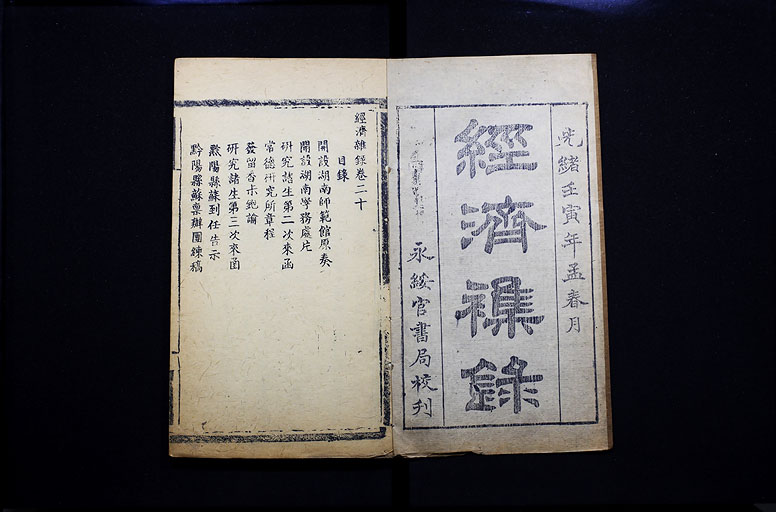 光緒壬寅年孟春月
經濟襍錄
永綏官書局校刋
經濟雜錄卷二十
目錄
開設湖南師範館原奏
開設湖南學務處片
研究諸生第二次來函
常德研究所章程
發留香未能諭
研究諸生第三次來函
黔陽縣蘇到任告示
黔陽縣蘇稟辦團練稿